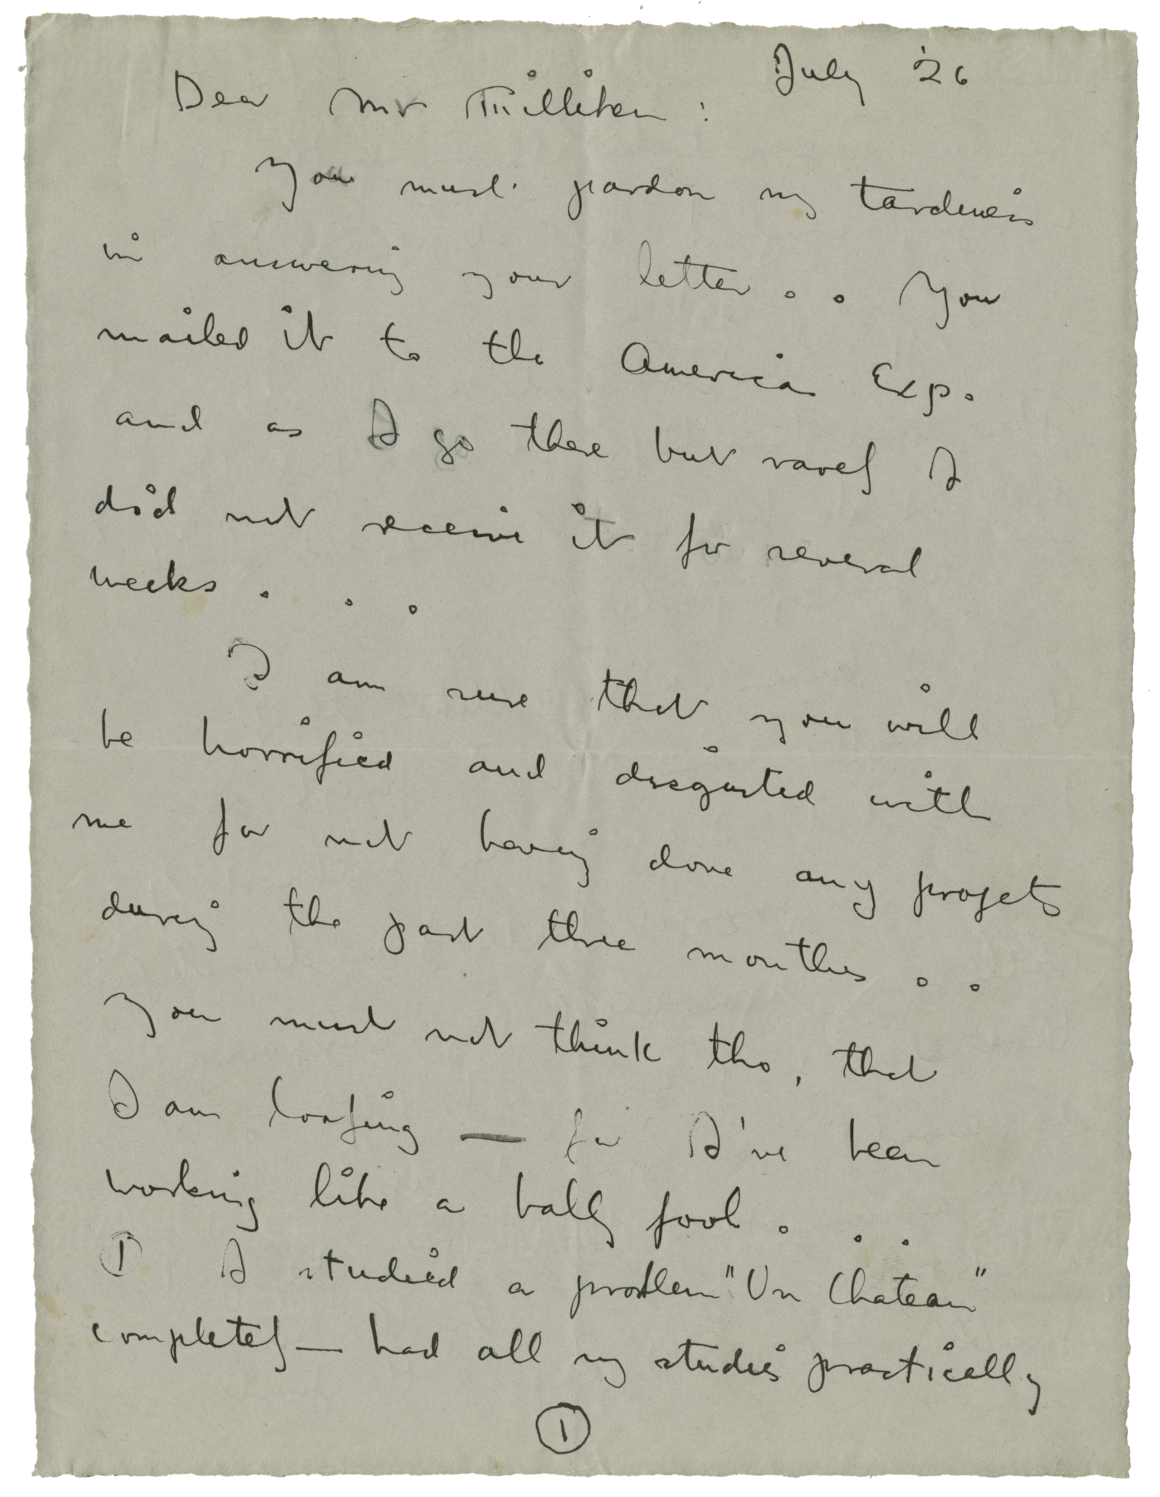 July '26
Dear Mr Milliken :
You must pardon my tardiness
in answering your letter . . You
mailed it to the American Exp.
and as I go there but rarely I
did not receive it for several
weeks . . .
I am sure that you will
be horrified and disgusted with
me for not having done any projets
during the past three months . .
you must not think tho, that
I am loafing — for I've been
working like a bally fool . . .
I I studied a problem "Un Chateau"
completely — had all my studies practically
1